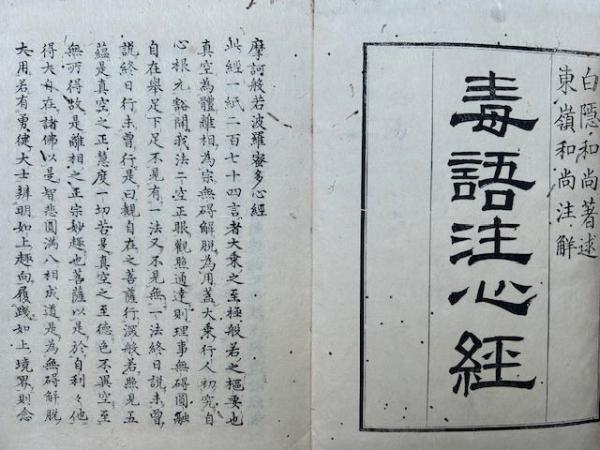 白隱和尚著述
東嶺和尚注解
毒語注心經
摩訶般若波羅蜜多心經
此經一紙二百七十四言者大乘之至極般若之樞要也
真空為體離相為宗無碍解脫為用蓋大乘行人初究自
心根元豁開我法二空正眼觀照通達則理事無碍圓融
自在舉足下足不見有一法又不見無一法終日說未曾
說終日行未曾行是曰觀自在之菩薩行深般若照見五
蘊是真空之正慧度一切苦是真空之至德色不異空至
無所得故是離相之正宗妙趣也菩薩以是於自利々他
得大自在諸佛以是智悲圓滿八相成道是為無碍解脫
大用若有勇徤大士辨明如上趣向履踐如上境界則念